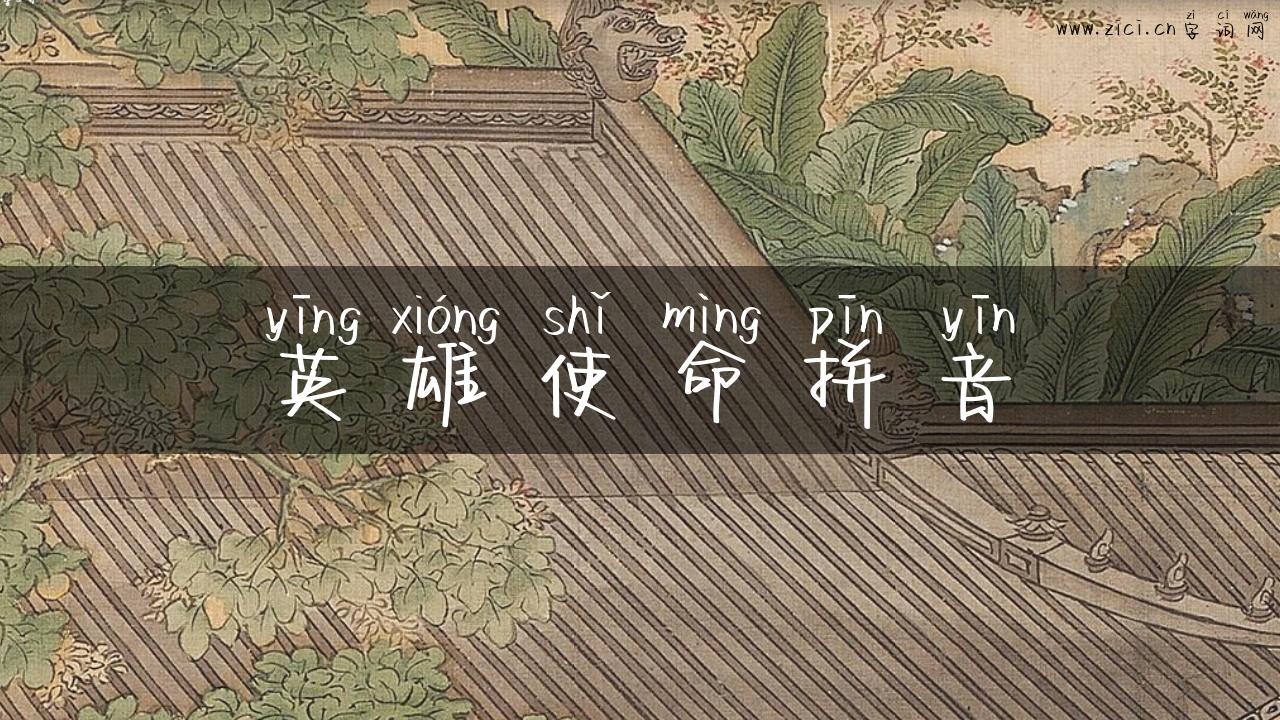 zì cí wǎng
www.zici.cn 字 词 网
yīng xióng shǐ mìng pīn yīn
英 雄 使 命 拼 音